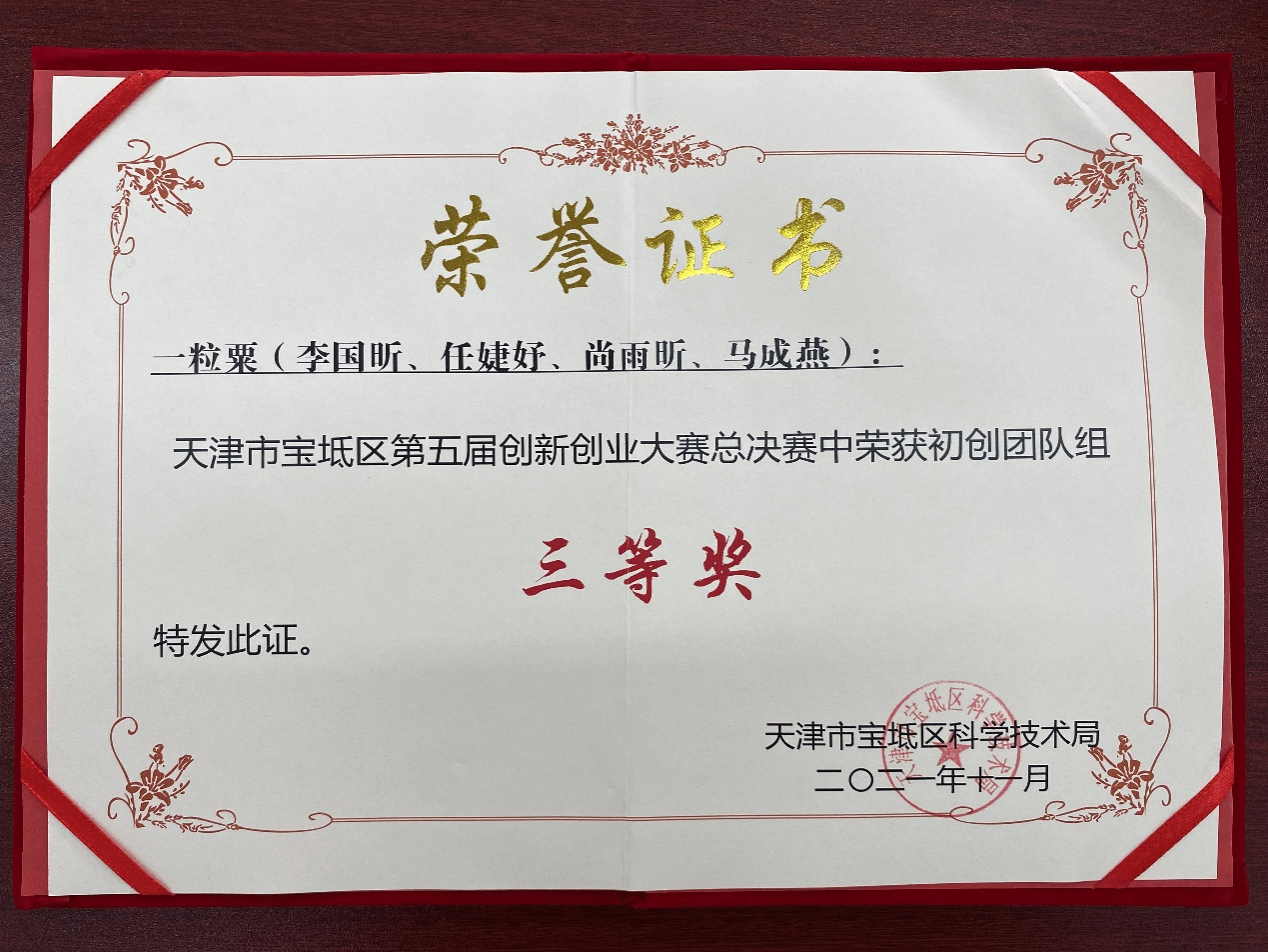 荣誉证书
一粒粟（李国昕、任婕妤、尚雨昕、马成燕）：
天津市宝坻区第五届创新创业大赛总决赛中荣获初创团队组
三等奖
特发此证。
天津市宝坻区科学技术局
二〇二一年十一月
天津市宝坻区科学技术局